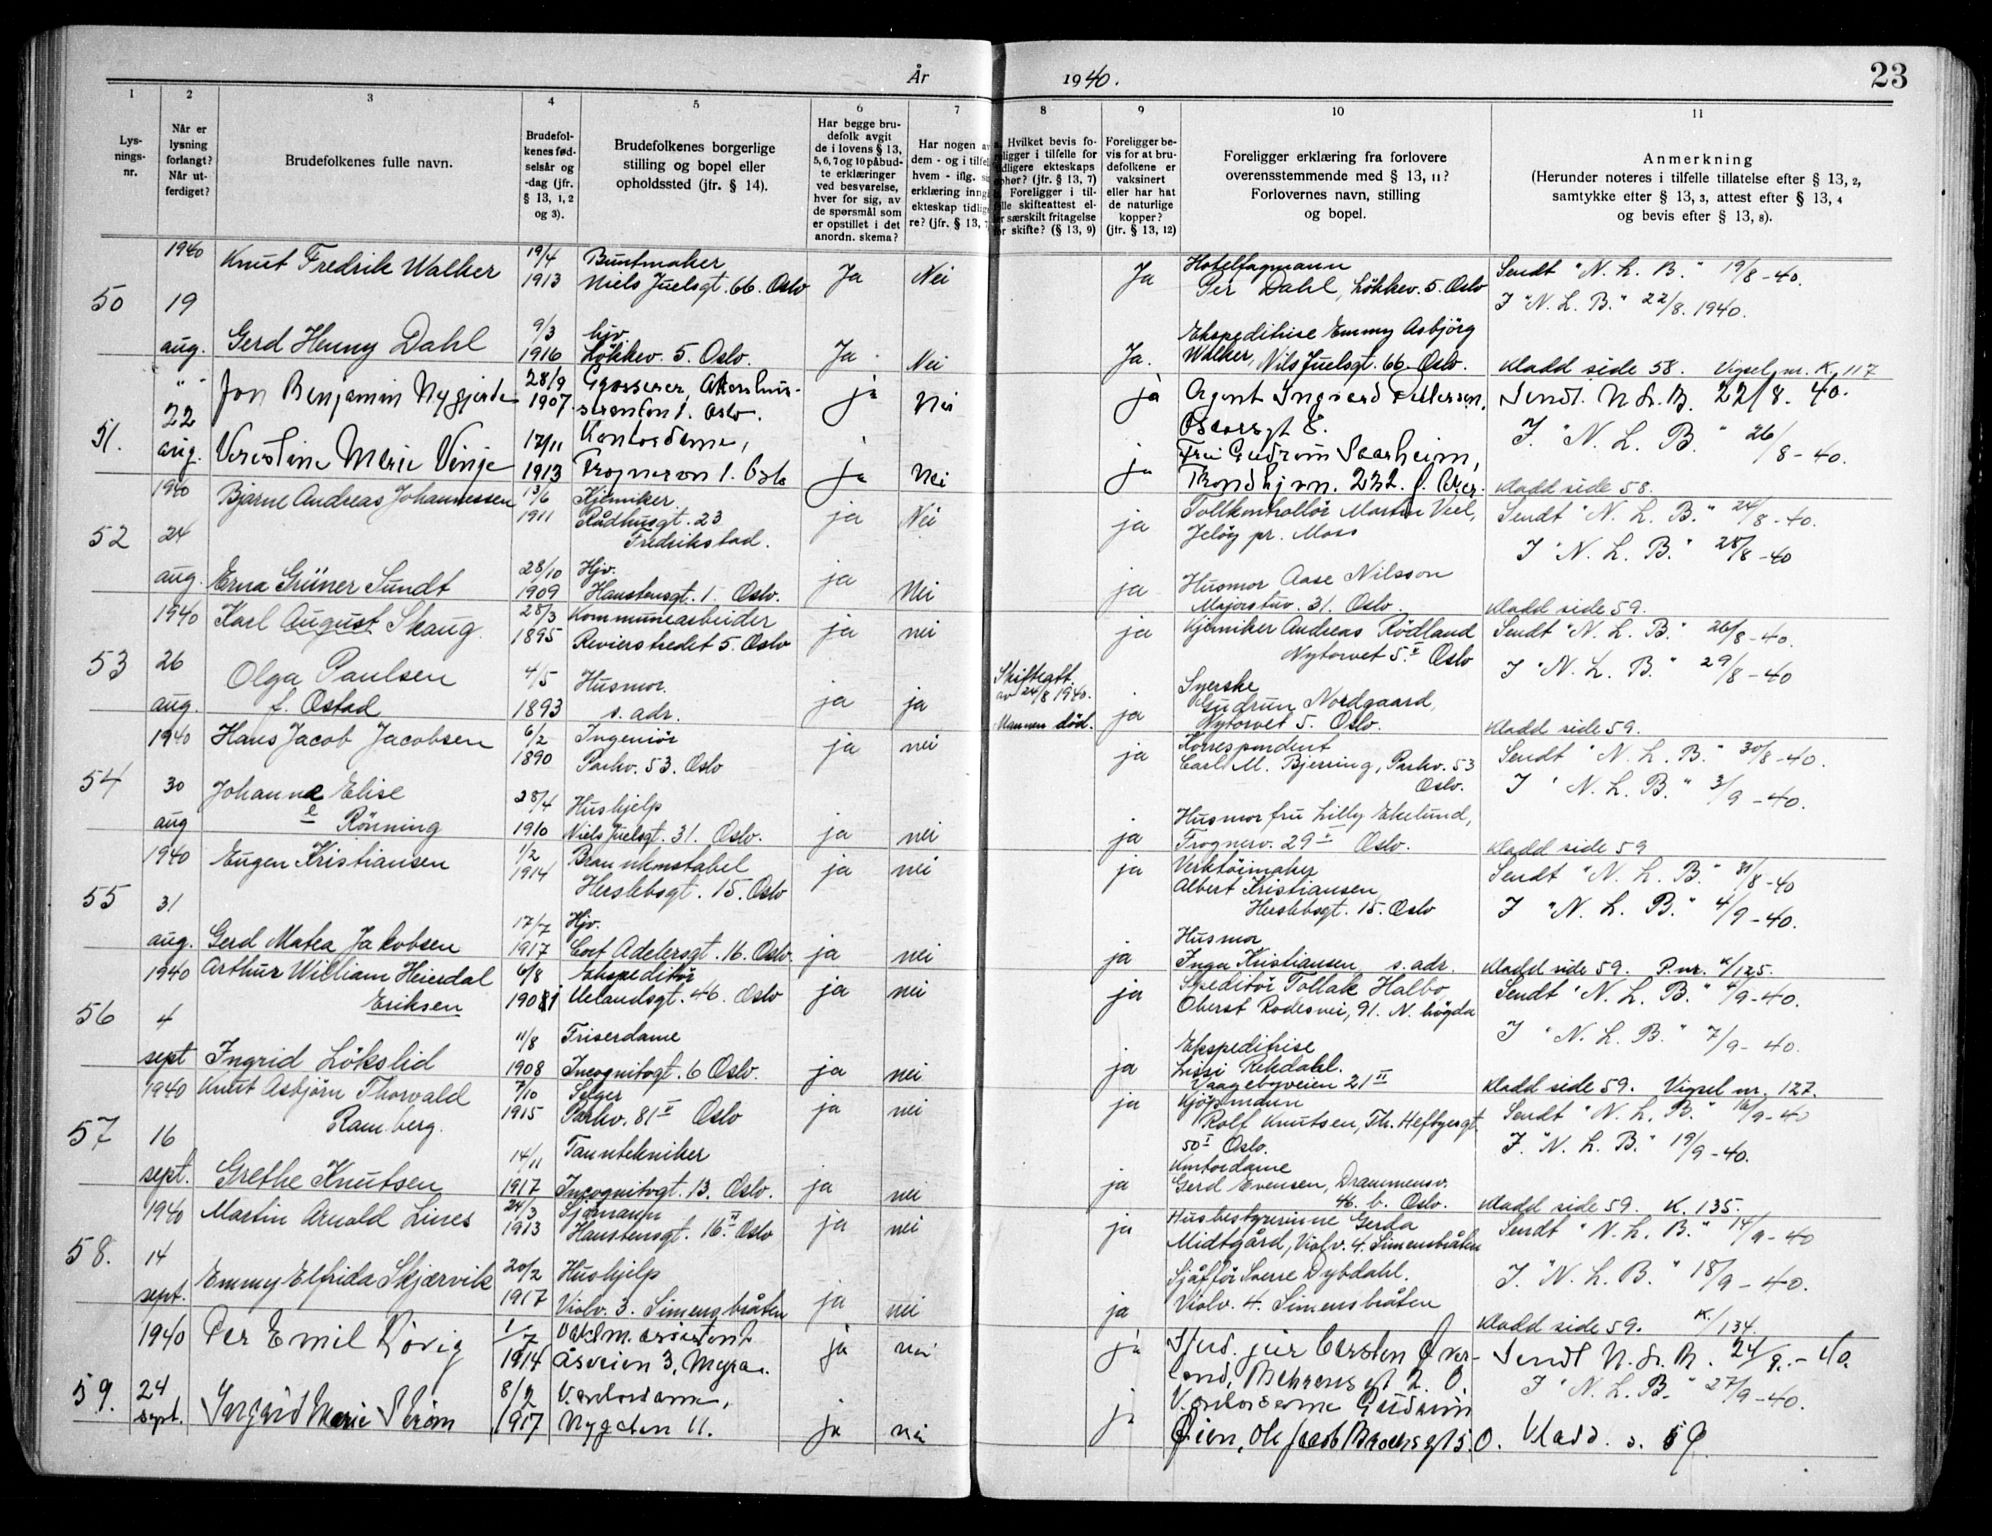 År 1940.
23
1 2 3 4 5 6 7 8 9 10 11
Lys-
nings-
nr.
Når er
lysning
forlangt?
Når ut-
ferdiget?
Brudefolkenes fulle navn.
Brudefol-
kenes fød-
selsår og
-dag (jfr.
§ 13, 1, 2
og 3).
Brudefolkenes borgerlige
stilling og bopel eller
opholdssted (jfr. § 14).
Har begge bru-
defolk avgit
de i lovens § 13,
5, 6, 7 og 10 påbud-
te erklæringer
ved besvarelse,
hver for sig, av
de spørsmål som
er opstillet i det
anordn. skema?
Har nogen av
dem - og i tilfel
hvem - iflg.
erklæring inng
ekteskap tidlig
re? (jfr. § 13, 7
Hvilket bevis fo-
religger i tilfelle for
tidligere ekteskaps
opher? (jfr. § 13, 7)
Foreligger i til-
felle skifteattest el-
ler særskilt fritagelse
for skifte? (§ 13, 9)
Foreligger be-
vis for at bru-
defolkene er
vaksinert
eller har hat
de naturlige
kopper?
(jfr. § 13, 12)
Foreligger erklæring fra forlovere
overensstemmende med § 13, 11?
Forlovernes navn, stilling
og bopel.
Anmerkning
(Herunder noteres i tilfelle tillatelse efter § 13, 2,
samtykke efter § 13, 3, attest efter § 13, 4
og bevis efter § 13, 8).
50
1940
19
aug.
Knut Fredrik Walker
19/4
1913
Buntmaker
Niels Juelsgt. 66. Oslo
Ja
Nei
Ja
Hotelfagmann
Per Dahl, Løkkev. 5. Oslo
Sendt "N. L. B." 19/8 - 40.
I "N. L. B." 22/8. 1940.
Gerd Henny Dahl
9/3
1916
hjv.
Løkkev. 5. Oslo.
Ja.
Nei
Ja.
Ekspeditrise Emmy Asbjörg
Walker, Nils Juelsgt. 66. Oslo.
Kladd side 58. Vigsel, nr. K, 117
51.
" "
22
aug.
Jon Benjamin Nygjerde
28/9
1907.
Grosserer, Akershus-
stranden 1. Oslo.
ja
Nei
ja
Agent Ingvard Pettersen,
Oscarsgt 8.
Sendt. N. L. B. 22/8. 40.
I. "N. L. B." 26/8 - 40.
Kirstine Marie Vinje
17/11
1913
Kontordame,
Frognervn 1. Oslo
ja
Nei
ja
Fru Gudrun Saarheim,
Trondhjvn. 232. Ø. Aker.
Kladd side 58.
52
1940
24
aug.
Bjarne Andreas Johannessen
13/6
1911
Kjemiker
Rådhusgt. 23
Fredrikstad.
ja
Nei
ja
Tollkontrollør Martin Veel,
Jeløy pr. Moss
Sendt "N. L. B." 24/8 - 40.
I "N. L. B." 28/8 - 40
Erna Grüner Sundt
28/10
1909
Hjv.
Hanstensgt. 1. Oslo.
ja
Nei
ja
Husmor Aase Nilsson
Majorstuv. 31. Oslo.
Kladd side 59.
53
1940
26
aug.
Karl August Skaug.
28/3
1895
Kommunearbeider
Revierstredet 5. Oslo
ja
nei
ja
Kjemiker Andreas Rödland
Nytorvet 5. II Oslo
Sendt "N. L. B." 26/8 - 40.
I "N. L. B." 29/8 - 40
Olga Paulsen
f. Østad
4/5
1893
Husmor.
s. adr.
ja
ja
Skifteatt.
av 24/8 1940.
Mannen död.
ja
Syerske
Gudrun Nordgaard,
Nytorvet 5. Oslo.
Kladd side 59.
54
1940
30
aug
Hans Jacob Jacobsen
6/2
1890
Ingeniør
Parkv. 53. Oslo
ja
nei
ja
Korrespondent
Carl M. Bjerring, Parkv. 53
Oslo.
Sendt "N. L. B." 30/8 - 40.
I "N. L. B." 3/9 - 40.
Johanne Elise
e
Rönning
28/4
1910
Hushjelp
Niels Juelsgt. 31. Oslo.
ja
nei
ja
Husmor fru Lilly Ekelund,
Frognerv. 29 I Oslo.
Kladd side 59
55
1940
31
aug.
Eugen Kristiansen
1/2
1914
Brannkonstabel
Herslebsgt. 15. Oslo
ja
nei
ja
Verktöimaker
Albert Kristiansen,
Herslebsgt. 15. Oslo
Sendt "N. L. B." 31/8 - 40
I "N. L. B." 4/9 - 40.
Gerd Matea Jakobsen
17/7
1917
Hjv.
Cort Adelersgt. 16. Oslo.
ja
nei
ja
Husmor
Inga Kristiansen s. adr.
Kladd side 59. P. nr. K/125.
56
1940
4
sept
Arthur William Heierdal
Eriksen
6/8
Ekspeditör
Uelandsgt. 46. Oslo
ja
nei
ja
Speditör Tollak Halbo,
Oberst Rodesvei, 91. N. högda
Sendt "N. L. B." 4/9 - 40.
I "N. L. B." 7/9 - 40.
Ingrid Lökslid
11/8
1908
Friserdame
Incognitogt. 6 Oslo.
ja
nei
ja
Ekspeditrise
Lissi Rekdahl.
Vaagebyveien 21 II
Kladd side 59. Vigsel nr. 127.
57
1940
16
sept.
Knut Asbjørn Thorvald
Ramberg.
7/10
1915
Selger
Parkv. 81 II Oslo
ja
nei
ja
Kjøpmann
Rolf Knutsen, Th. Heftyesgt.
50 I Oslo.
Sendt "N. L. B." 16/9 - 40
I. "N. L. B." 19/9 - 40.
Grethe Knutsen
14/11
1917
Tanntekniker
Incognitogt. 13. Oslo.
ja
nei
ja
Kontordame
Gerd Evensen, Drammensv.
46. b. Oslo.
Kladd side 59. K. 135.
58.
1940
14
sept.
Martin Arnold Lines
24/3
1913
Sjömann
Hanstensgt. 16 II Oslo
ja
nei
ja
Husbestyrerinne Gerda
Midtgård, Violv. 4. Simensbråten
Sendt "N. L. B." 14/9 - 40
I. "N. L. B." 18/9 - 40.
Emmy Elfrida Skjærvik
20/2
1917
Hushjelp
Violv. 3. Simensbråten
ja
nei
ja
Sjåfför Sverre Dybdahl.
Violv. 4. Simensbråten
Kladd side 59. K./134.
59.
1940
24
sept.
Per Emil Rövig
1/7
1914
Åsveien 3,
ja
nei
ja
Stud. jur Carsten Øver-
land, Behrensgt 2. O
Sendt N. L. B. 24/9. - 40.
I "N. L. B." 27/9 - 40.
Ingrid Marie Ström
8/2
1917
Kontordame,
Nygaten 11.
ja
nei
ja
Kontordame Gudrun
Øien, Ole Jacob Brochsgt 5. O.
Kladd. s. 59